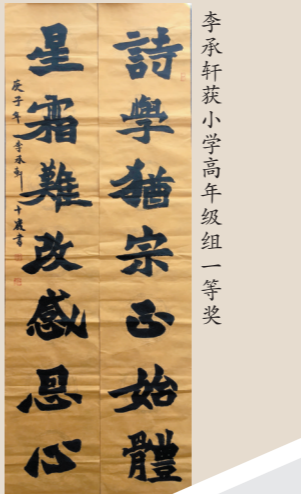 李承轩获小学高年级组一等奖
詩學猶宗正始體
星霜難改感恩心
庚子年李承軒十歲書